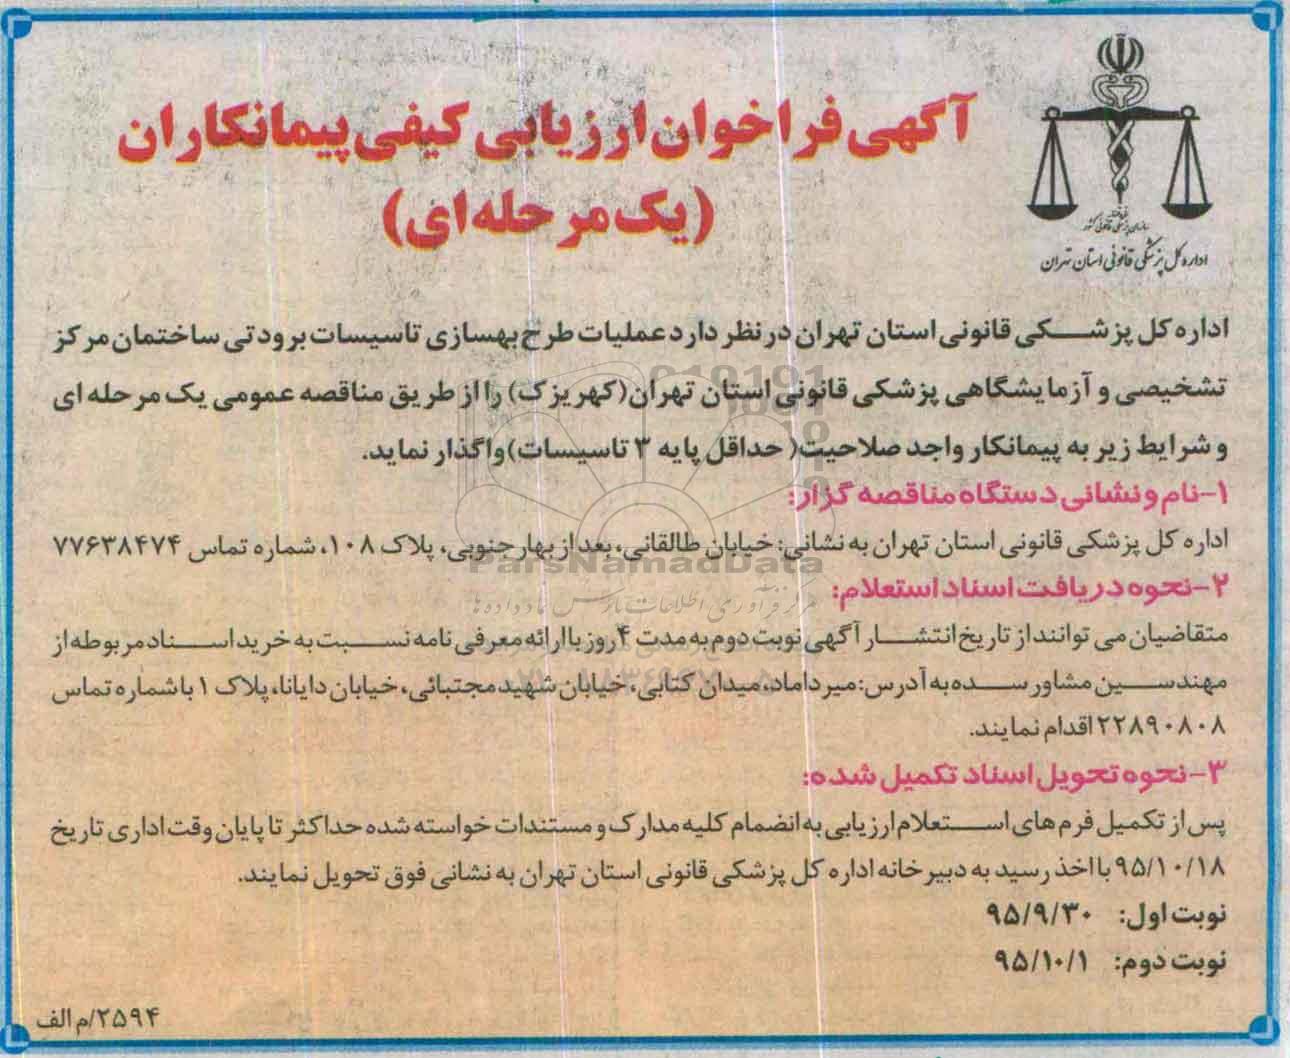 آگهی فراخوان ارزیابی کیفی پیمانکاران
(یک مرحله‌ای)
سازمان پزشکی قانونی کشور
اداره کل پزشکی قانونی استان تهران
اداره کل پزشکی قانونی استان تهران در نظر دارد عملیات طرح بهسازی تاسیسات برودتی ساختمان مرکز
تشخیصی و آزمایشگاهی پزشکی قانونی استان تهران (کهریزک) را از طریق مناقصه عمومی یک مرحله ای
و شرایط زیر به پیمانکار واجد صلاحیت( حداقل پایه ۳ تاسیسات)واگذار نماید.
۱-نام و نشانی دستگاه مناقصه گزار:
اداره کل پزشکی قانونی استان تهران به نشانی: خیابان طالقانی، بعد از بهار جنوبی، پلاک ۱۰۸، شماره تماس ۷۷۶۳۸۴۷۴
ParsNamadData
مرکز فرآوری اطلاعات پارس نماد داده ها
۲-نحوه دریافت اسناد استعلام:
متقاضیان می توانند از تاریخ انتشار آگهی نوبت دوم به مدت ۴ روز با ارائه معرفی نامه نسبت به خرید اسناد مربوطه از
مهندسین مشاور سده به آدرس: میرداماد، میدان کتابی، خیابان شهید مجتبائی، خیابان دایانا، پلاک ۱ با شماره تماس
۲۲۸۹۰۸۰۸ اقدام نمایند.
۳-نحوه تحویل اسناد تکمیل شده:
پس از تکمیل فرم های استعلام ارزیابی به انضمام کلیه مدارک و مستندات خواسته شده حداکثر تا پایان وقت اداری تاریخ
۹۵/۱۰/۱۸ با اخذ رسید به دبیرخانه اداره کل پزشکی قانونی استان تهران به نشانی فوق تحویل نمایند.
نوبت اول: ۹۵/۹/۳۰
نوبت دوم: ۹۵/۱۰/۱
۲۵۹۴/م الف